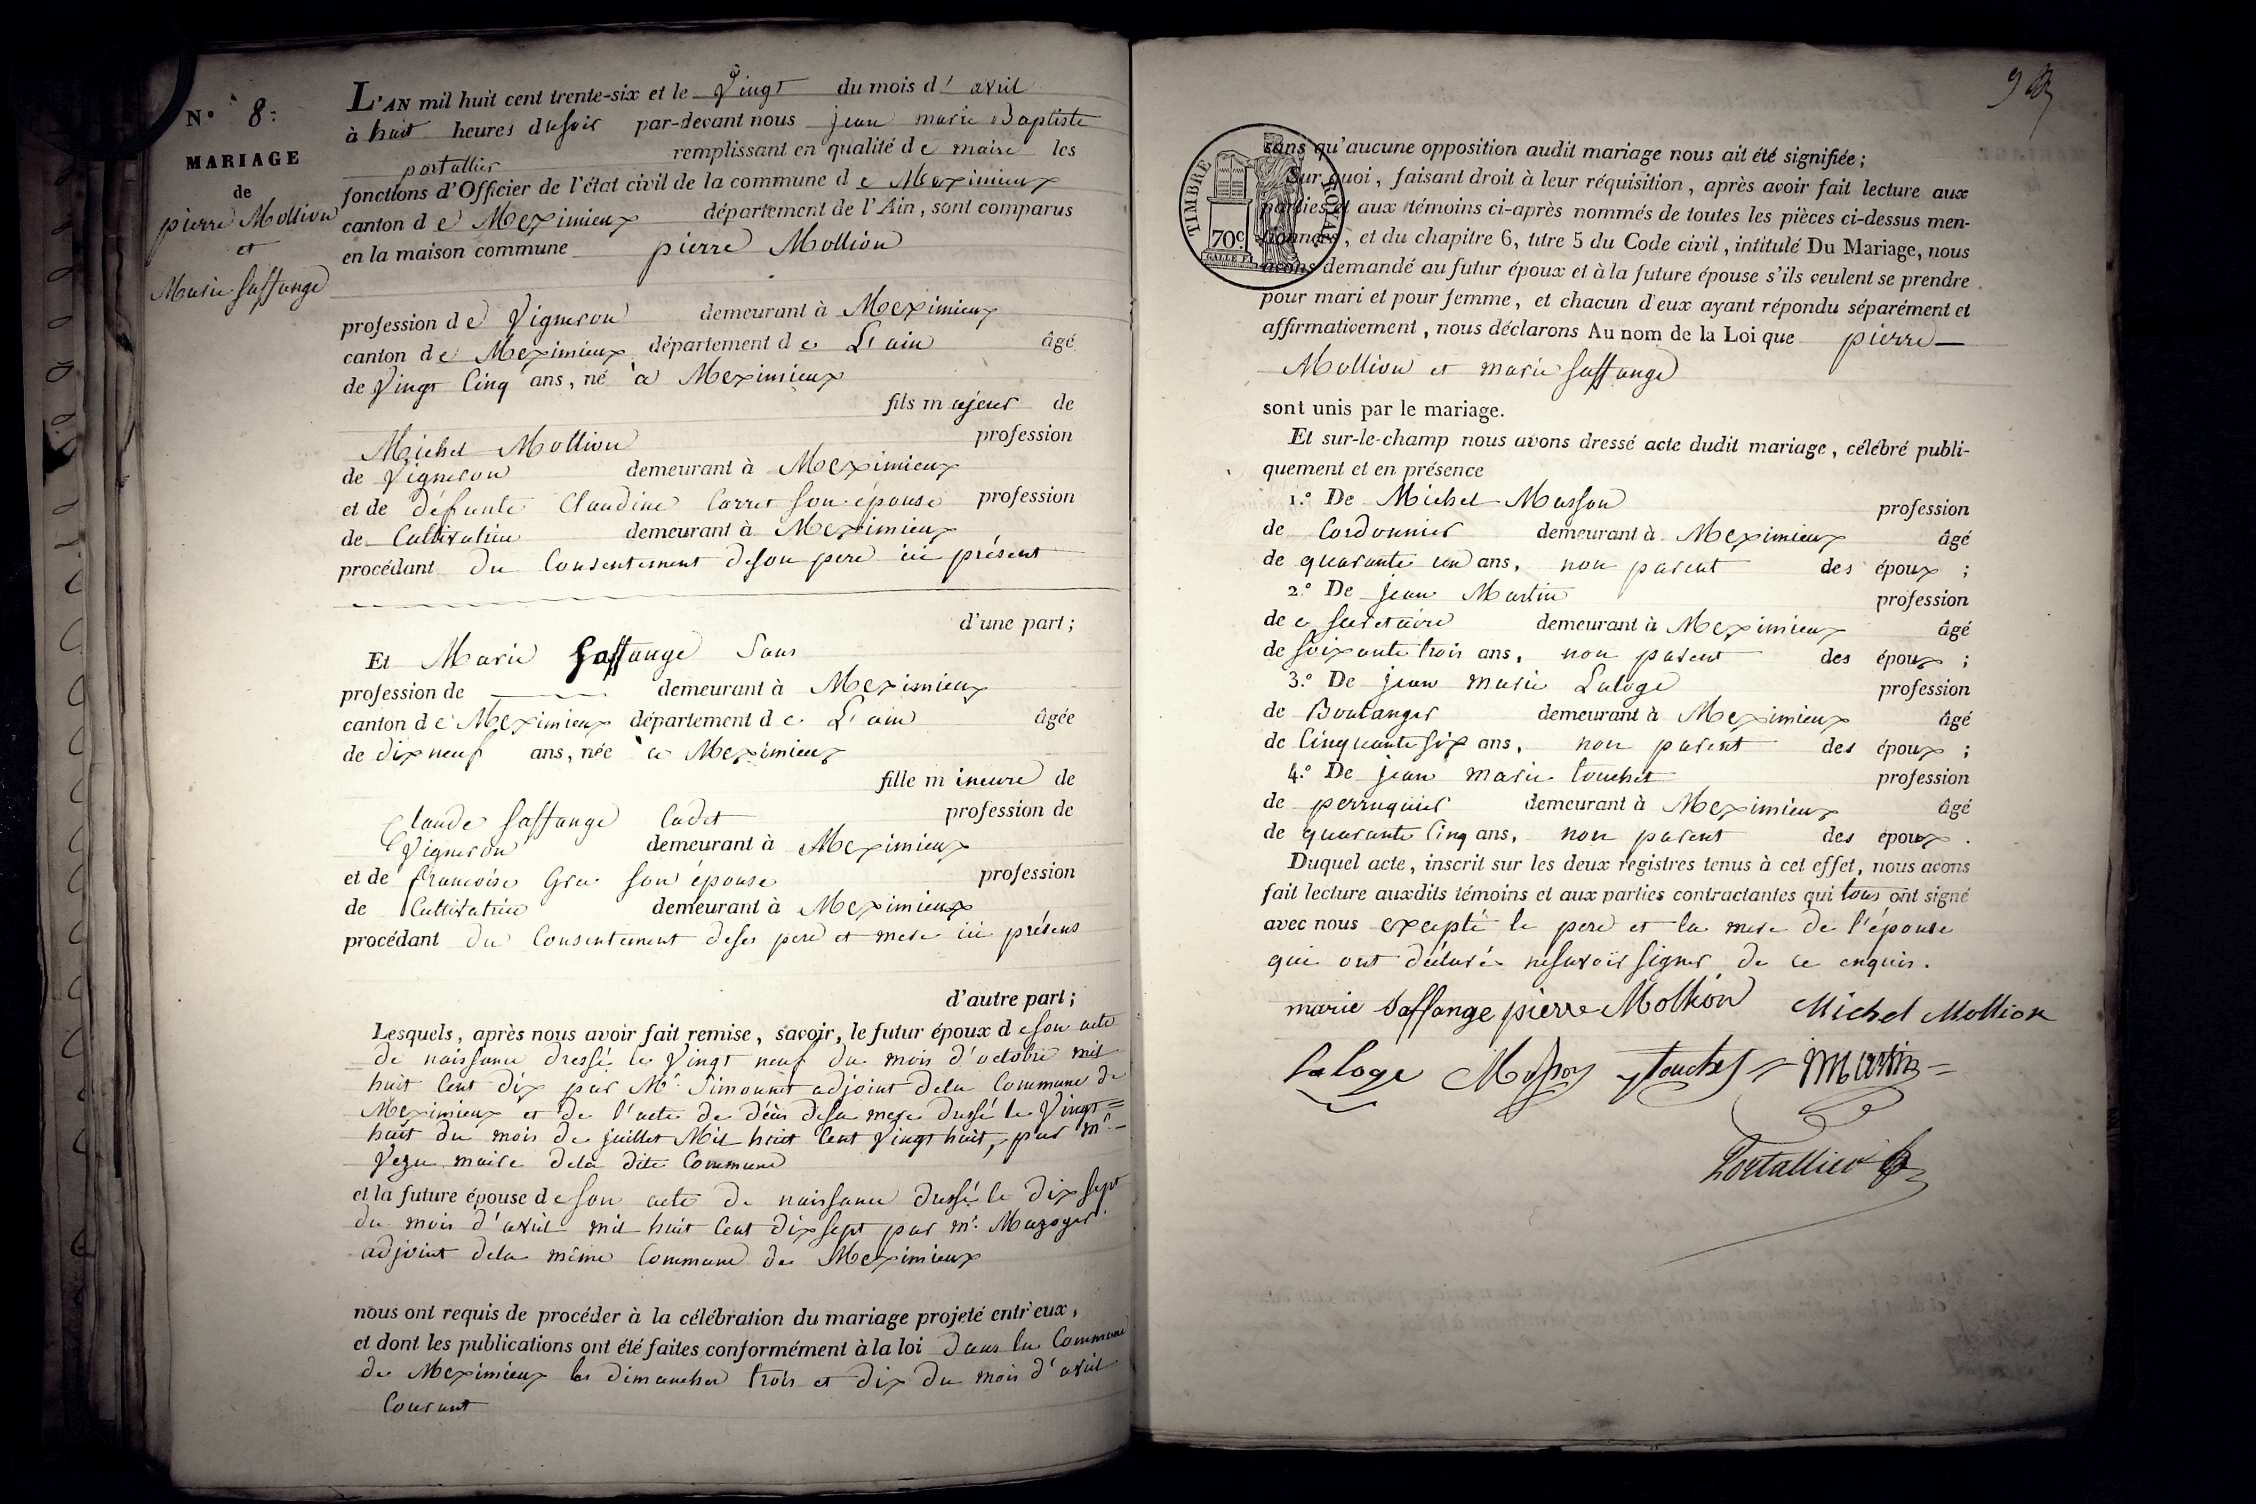 N.° 8.
MARIAGE
de
pierre Mollion
et
Marie Saffange
L'AN mil huit cent trente-six et le Vingt du mois d' avril
à huit heures du soir par-devant nous jean marie Baptiste
portallier remplissant en qualité de maire les
fonctions d'Officier de l'état civil de la commune de Meximieux
canton de Meximieux département de l'Ain, sont comparus
en la maison commune pierre Mollion
profession de Vigneron demeurant à Meximieux
canton de Meximieux département de L'ain âgé
de Vingt Cinq ans, né à Meximieux
fils majeur de
Michel Mollion profession
de Vigneron demeurant à Meximieux
et de défunte Claudine Carret son épouse profession
de Cultivatrice demeurant à Meximieux
procédant du Consentement de son pere ici présent
d'une part;
Et Marie Saffange Sans
profession de demeurant à Meximieux
canton de Meximieux département de L'ain âgée
de dix neuf ans, née à Meximieux
fille mineure de
Claude Saffange Cadet profession de
Vigneron demeurant à Meximieux
et de françoise Gra son épouse profession
de Cultivatrice demeurant à Meximieux
procédant du Consentement de ses pere et mere ici présens
d'autre part;
Lesquels, après nous avoir fait remise, savoir, le futur époux de son acte
de naissance dressé le Vingt neuf du mois d'octobre mil
huit Cent dix par Mr. Simonnet adjoint dela Commune de
Meximieux et de l'acte de décès de sa mere dressé le Vingt=
huit du mois de juillet Mil huit Cent Vingt huit, par mr.
Vezu maire dela dite Commune
et la future épouse de son acte de naissance dressé le dix sept
du mois d'avril mil huit Cent dix sept par mr. Mazoyer
adjoint dela même Commune de Meximieux
nous ont requis de procéder à la célébration du mariage projeté entr'eux,
et dont les publications ont été faites conformément à la loi dans la Commune
de Meximieux les dimanches trois et dix du mois d'avril
Courant
TIMBRE ROYAL
70c
sans qu'aucune opposition audit mariage nous ait été signifiée;
Sur quoi, faisant droit à leur réquisition, après avoir fait lecture aux
parties et aux témoins ci-après nommés de toutes les pièces ci-dessus men-
tionnées, et du chapitre 6, titre 5 du Code civil, intitulé Du Mariage, nous
avons demandé au futur époux et à la future épouse s'ils veulent se prendre
pour mari et pour femme, et chacun d'eux ayant répondu séparément et
affirmativement, nous déclarons Au nom de la Loi que pierre
Mollion et marie Saffange
sont unis par le mariage.
Et sur-le-champ nous avons dressé acte dudit mariage, célébré publi-
quement et en présence
1.° De Michel Masson profession
de Cordonnier demeurant à Meximieux âgé
de quarante un ans, non parent des époux;
2.° De jean Martin profession
de secretaire demeurant à Meximieux âgé
de soixante trois ans, non parent des époux;
3.° De jean marie Laloge profession
de Boulanger demeurant à Meximieux âgé
de Cinquante six ans, non parent des époux;
4.° De jean marie touchet profession
de perruquier demeurant à Meximieux âgé
de quarante Cinq ans, non parent des époux.
Duquel acte, inscrit sur les deux registres tenus à cet effet, nous avons
fait lecture auxdits témoins et aux parties contractantes qui tous ont signé
avec nous excepté le pere et la mere de l'épouse
qui ont déclaré ne savoir signer de ce enquis.
marie Saffange pierre Mollion Michel Mollion
Laloge Masson touchet Martin
Portallier